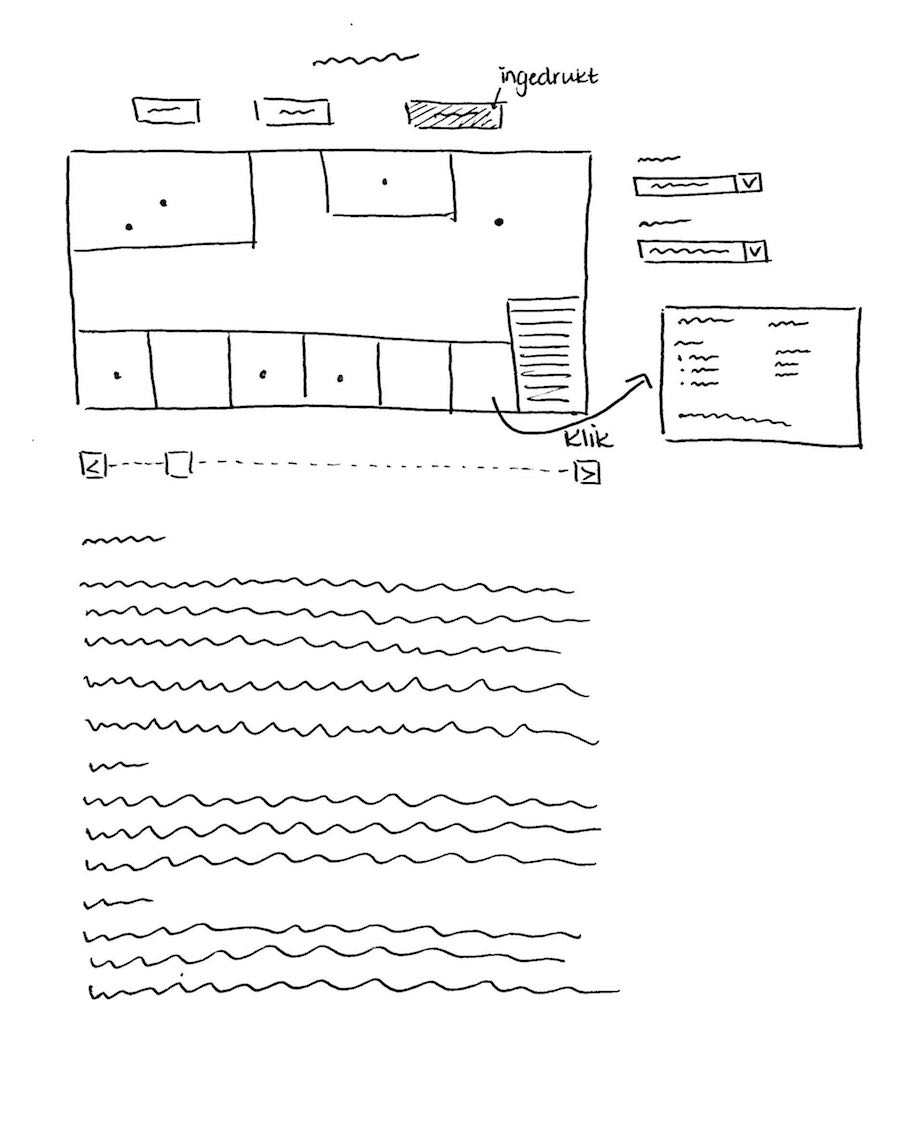 ingedrukt
Klik